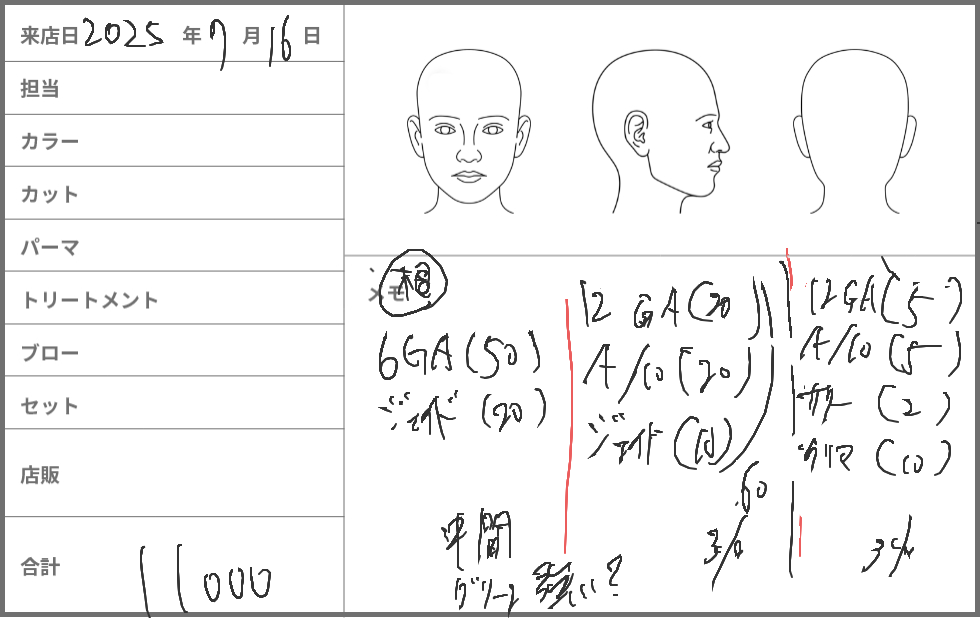 来店日 2025 年 7 月 16 日
担当
カラー
カット
パーマ
トリートメント
ブロー
セット
店販
合計 11000
メモ
根
6GA(50)
ジェイド(20)
12 GA(20)
A/10(20)
ジェイド(10)
60
3/0
12GA(5)
A/10(5)
(2)
クリア(10)
中間
グリーン強い?